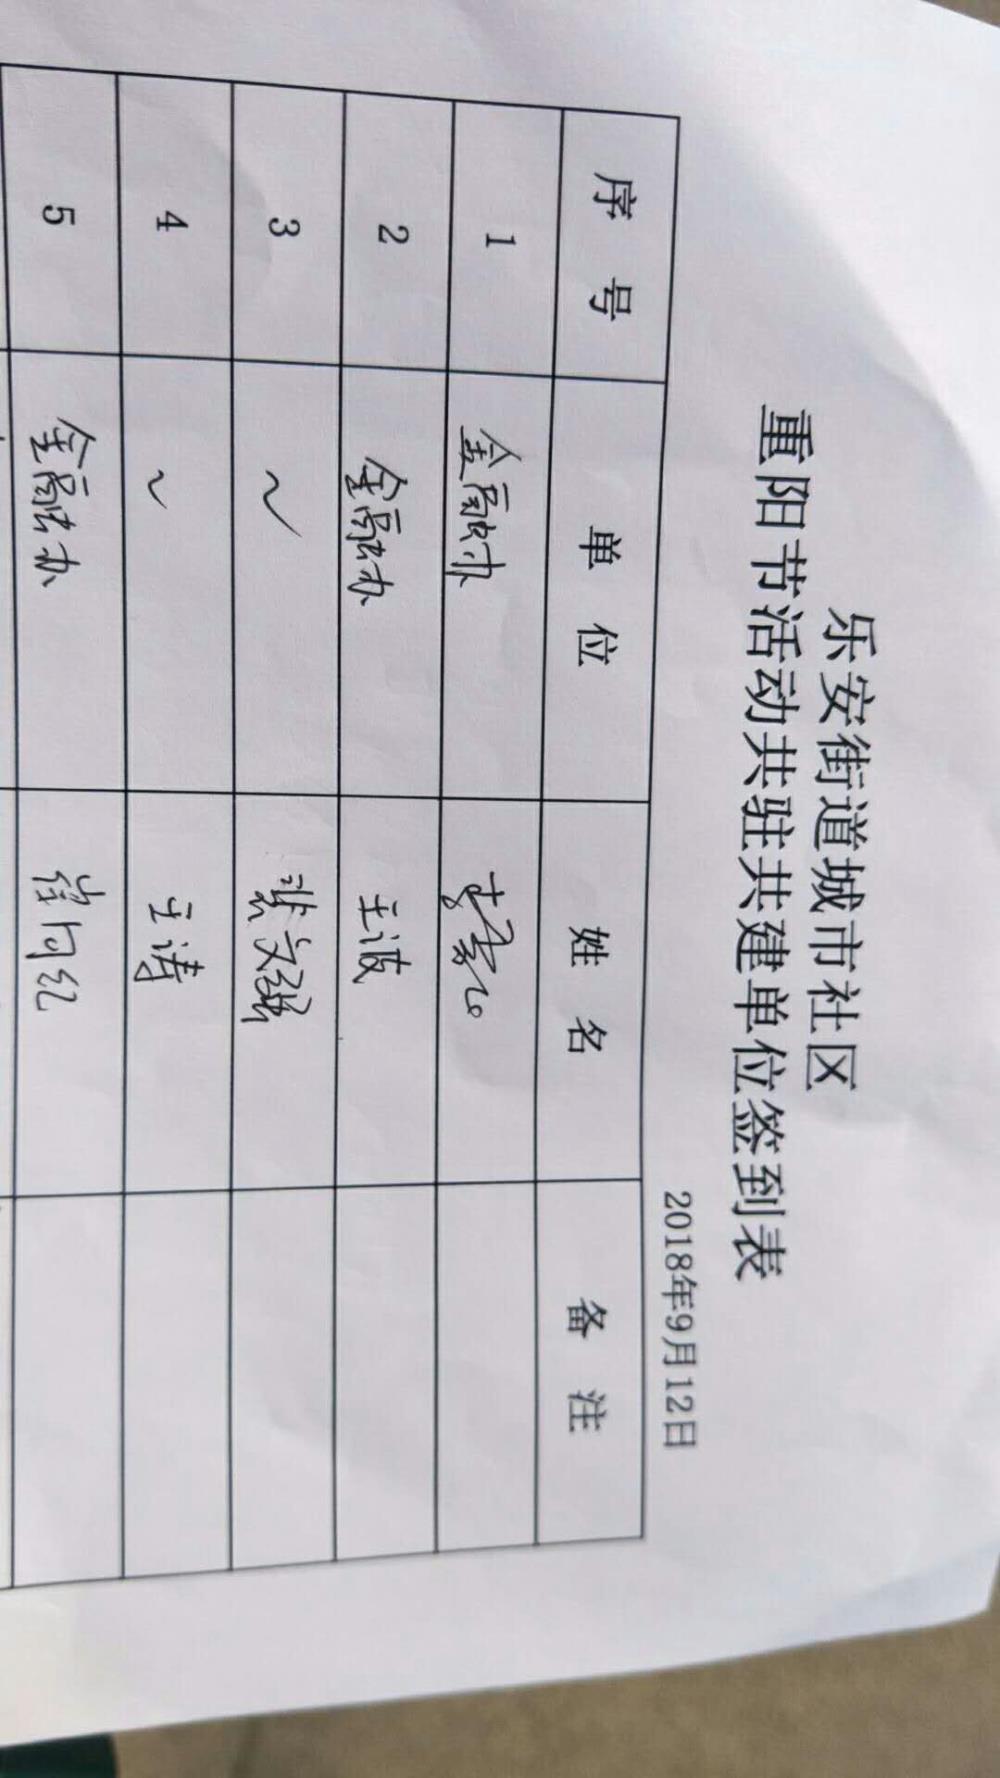 乐安街道城市社区
重阳节活动共驻共建单位签到表
2018年9月12日
序号 单位 姓名 备注
1 金融办
2 金融办 王波
3 〃 张文
4 〃 王涛
5 金融办